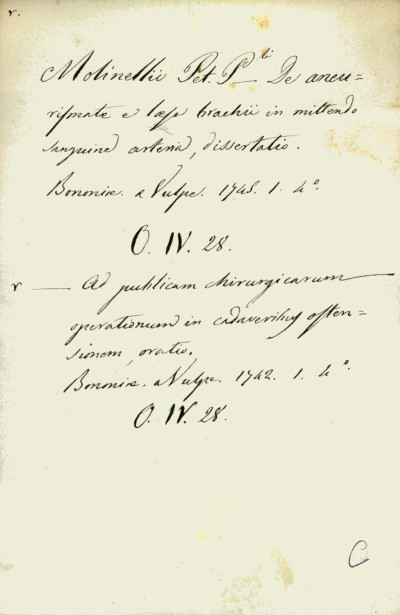 r.
Molinellii Pet. P.li De aneu=
rismate e læso brachii in mittendo
sanguine arteria, dissertatio.
Bononiæ. a Vulpe. 1745. 1. 4°.
O. IV. 28.
r — Ad publicam chirurgicarum
operationum in cadaveribus osten=
sionem, oratio.
Bononiæ. a Vulpe. 1742. 1. 4°.
O. IV. 28.
C